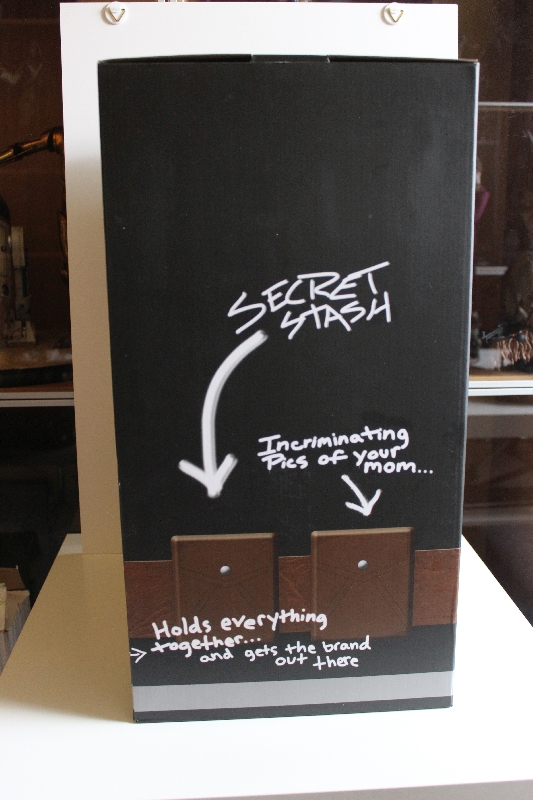 SECRET
STASH
Incriminating
Pics of your
mom...
Holds everything
together...
and gets the brand
out there